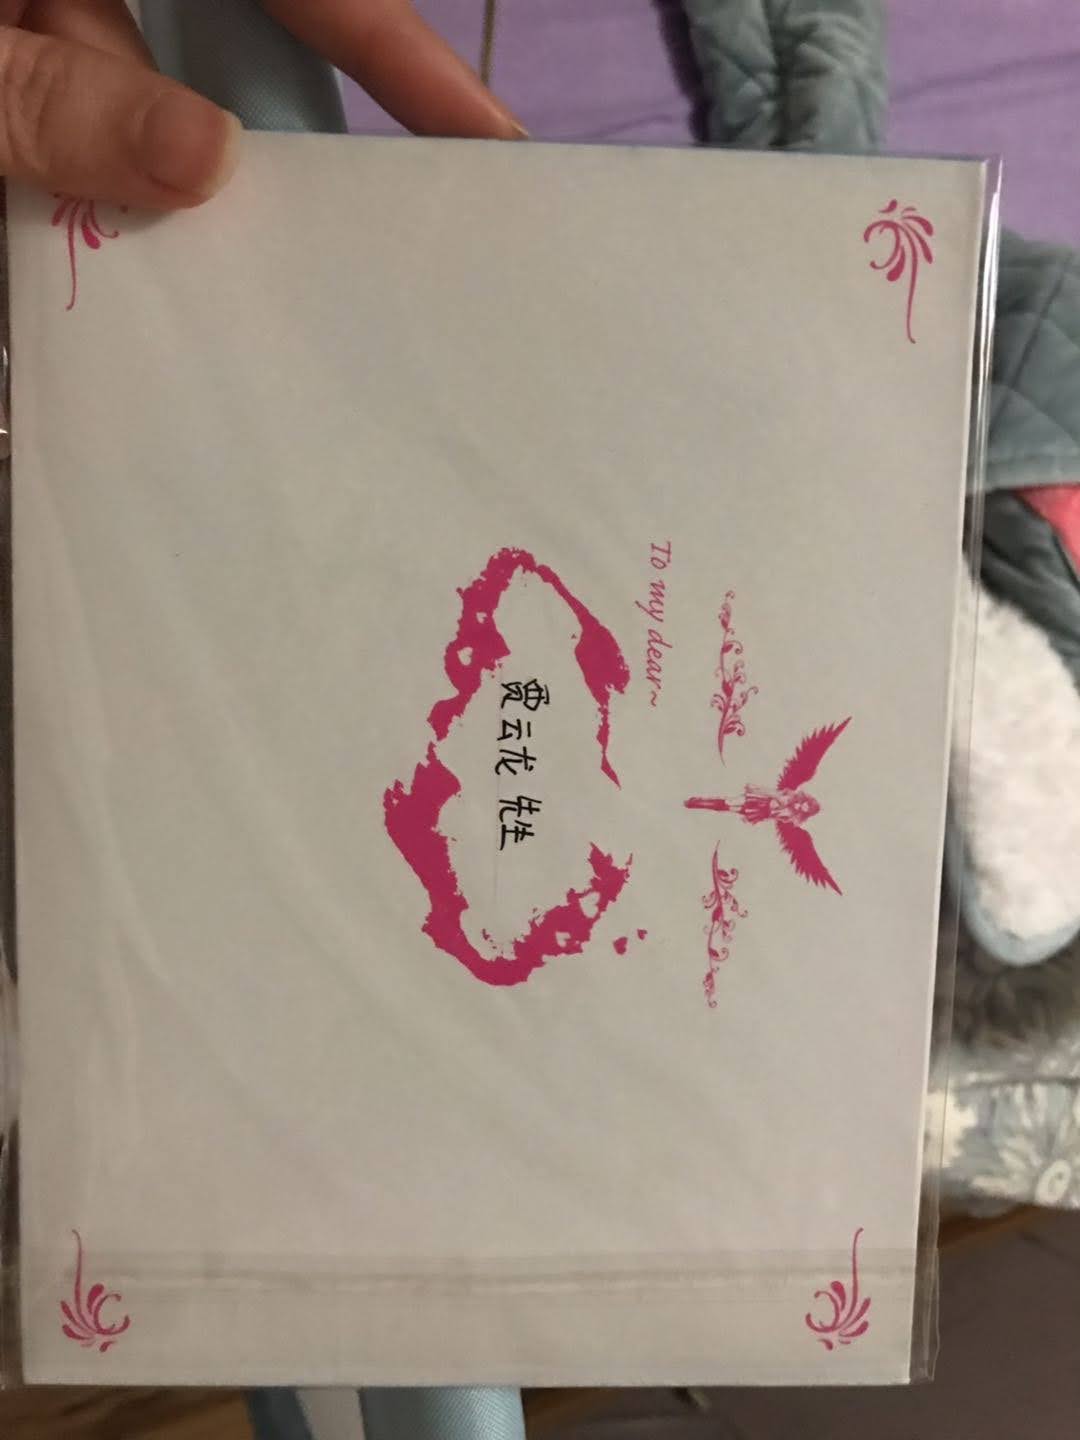 To my dear~
贾云龙 先生